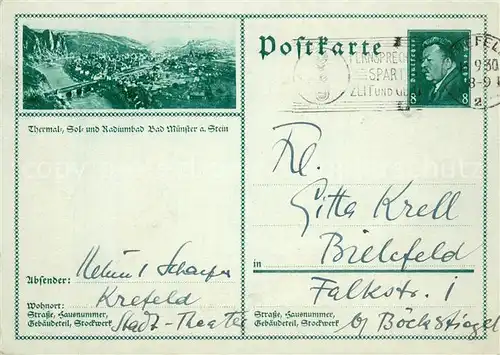 Postkarte
FERNSPRECH
SPART
ZEIT UND GE
Deutsches Reich
8 8
Thermal-, Sol- und Radiumbad Bad Münster a. Stein
Frl.
Gitta Krell
in Bielefeld
Falkstr. 1
bei Böckstiegel
Absender: Helmut Schaefer
Wohnort: Krefeld
Straße, Hausnummer,
Gebäudeteil, Stockwerk
Stadt-Theater
Straße, Hausnummer,
Gebäudeteil, Stockwerk